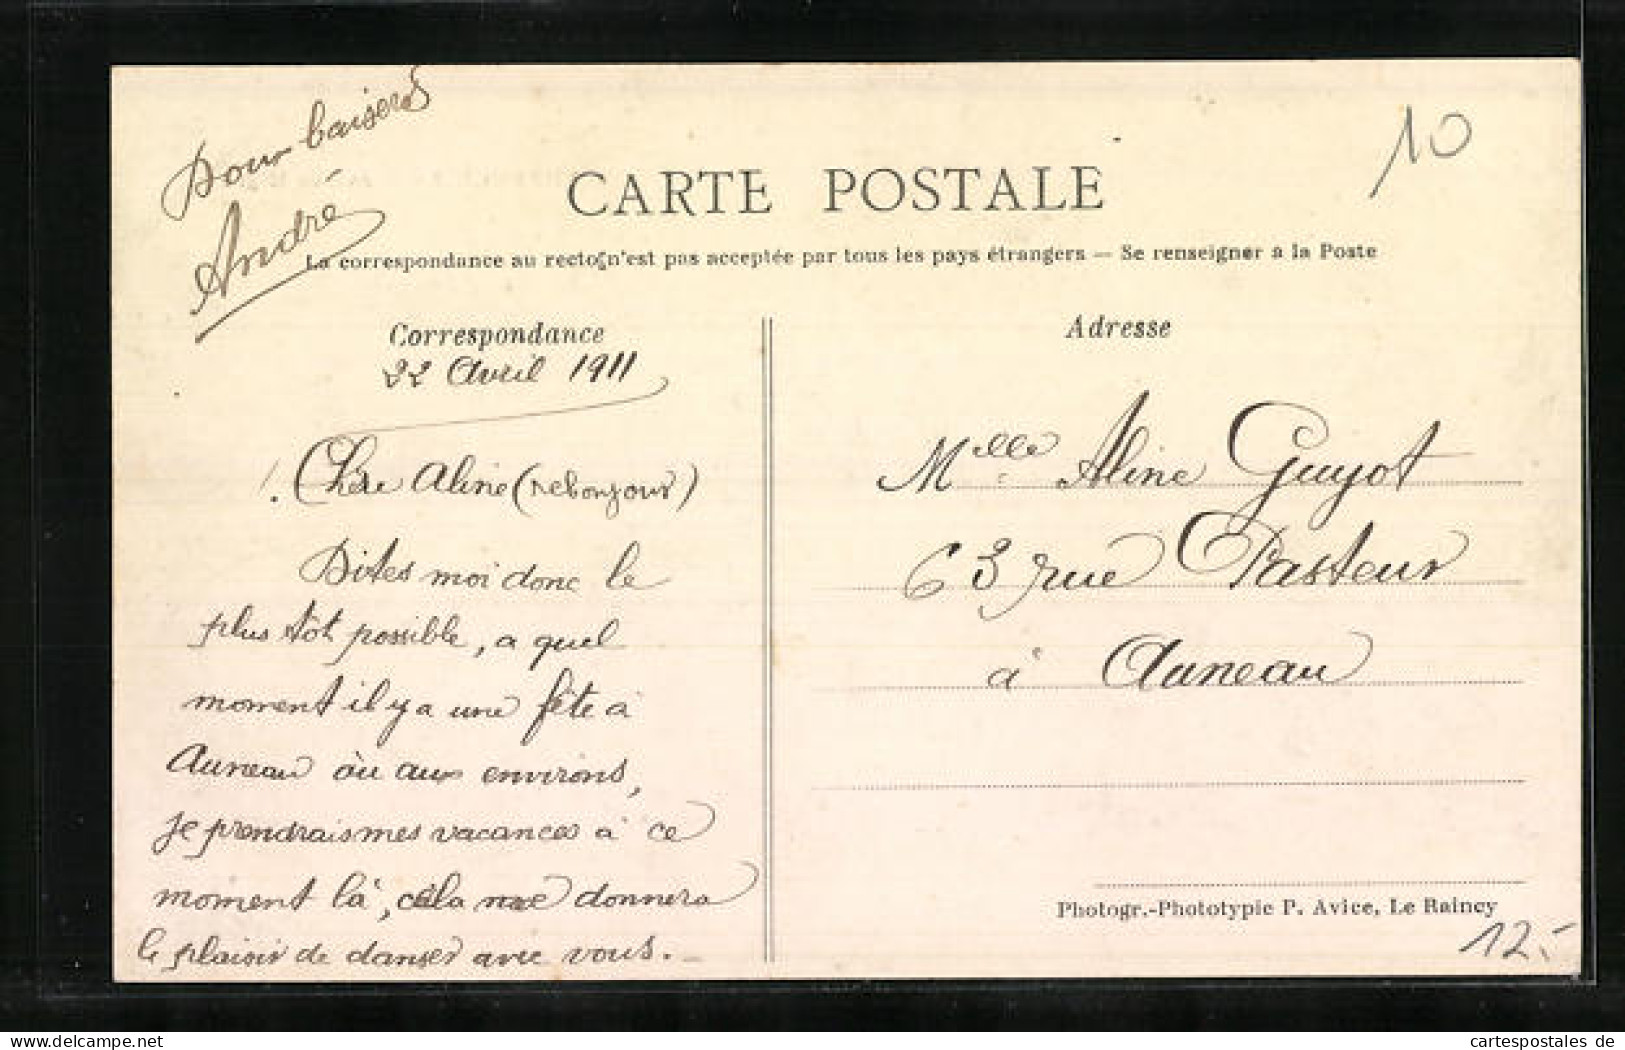 Doux baisers
André
10
CARTE POSTALE
La correspondance au recto n'est pas acceptée par tous les pays étrangers — Se renseigner à la Poste
Correspondance
22 Avril 1911
Chère Aline (rebonjour)
Dites moi donc le
plus tôt possible, a quel
moment il y a une fête à
Auneau où aux environs,
je prendrais mes vacances à ce
moment là, cela me donnera
le plaisir de danser avec vous. —
Adresse
Melle Aline Guyot
63 rue Pasteur
à Auneau
Photogr.-Phototypie P. Avice, Le Raincy
12.-
oldthing
cartespostales de